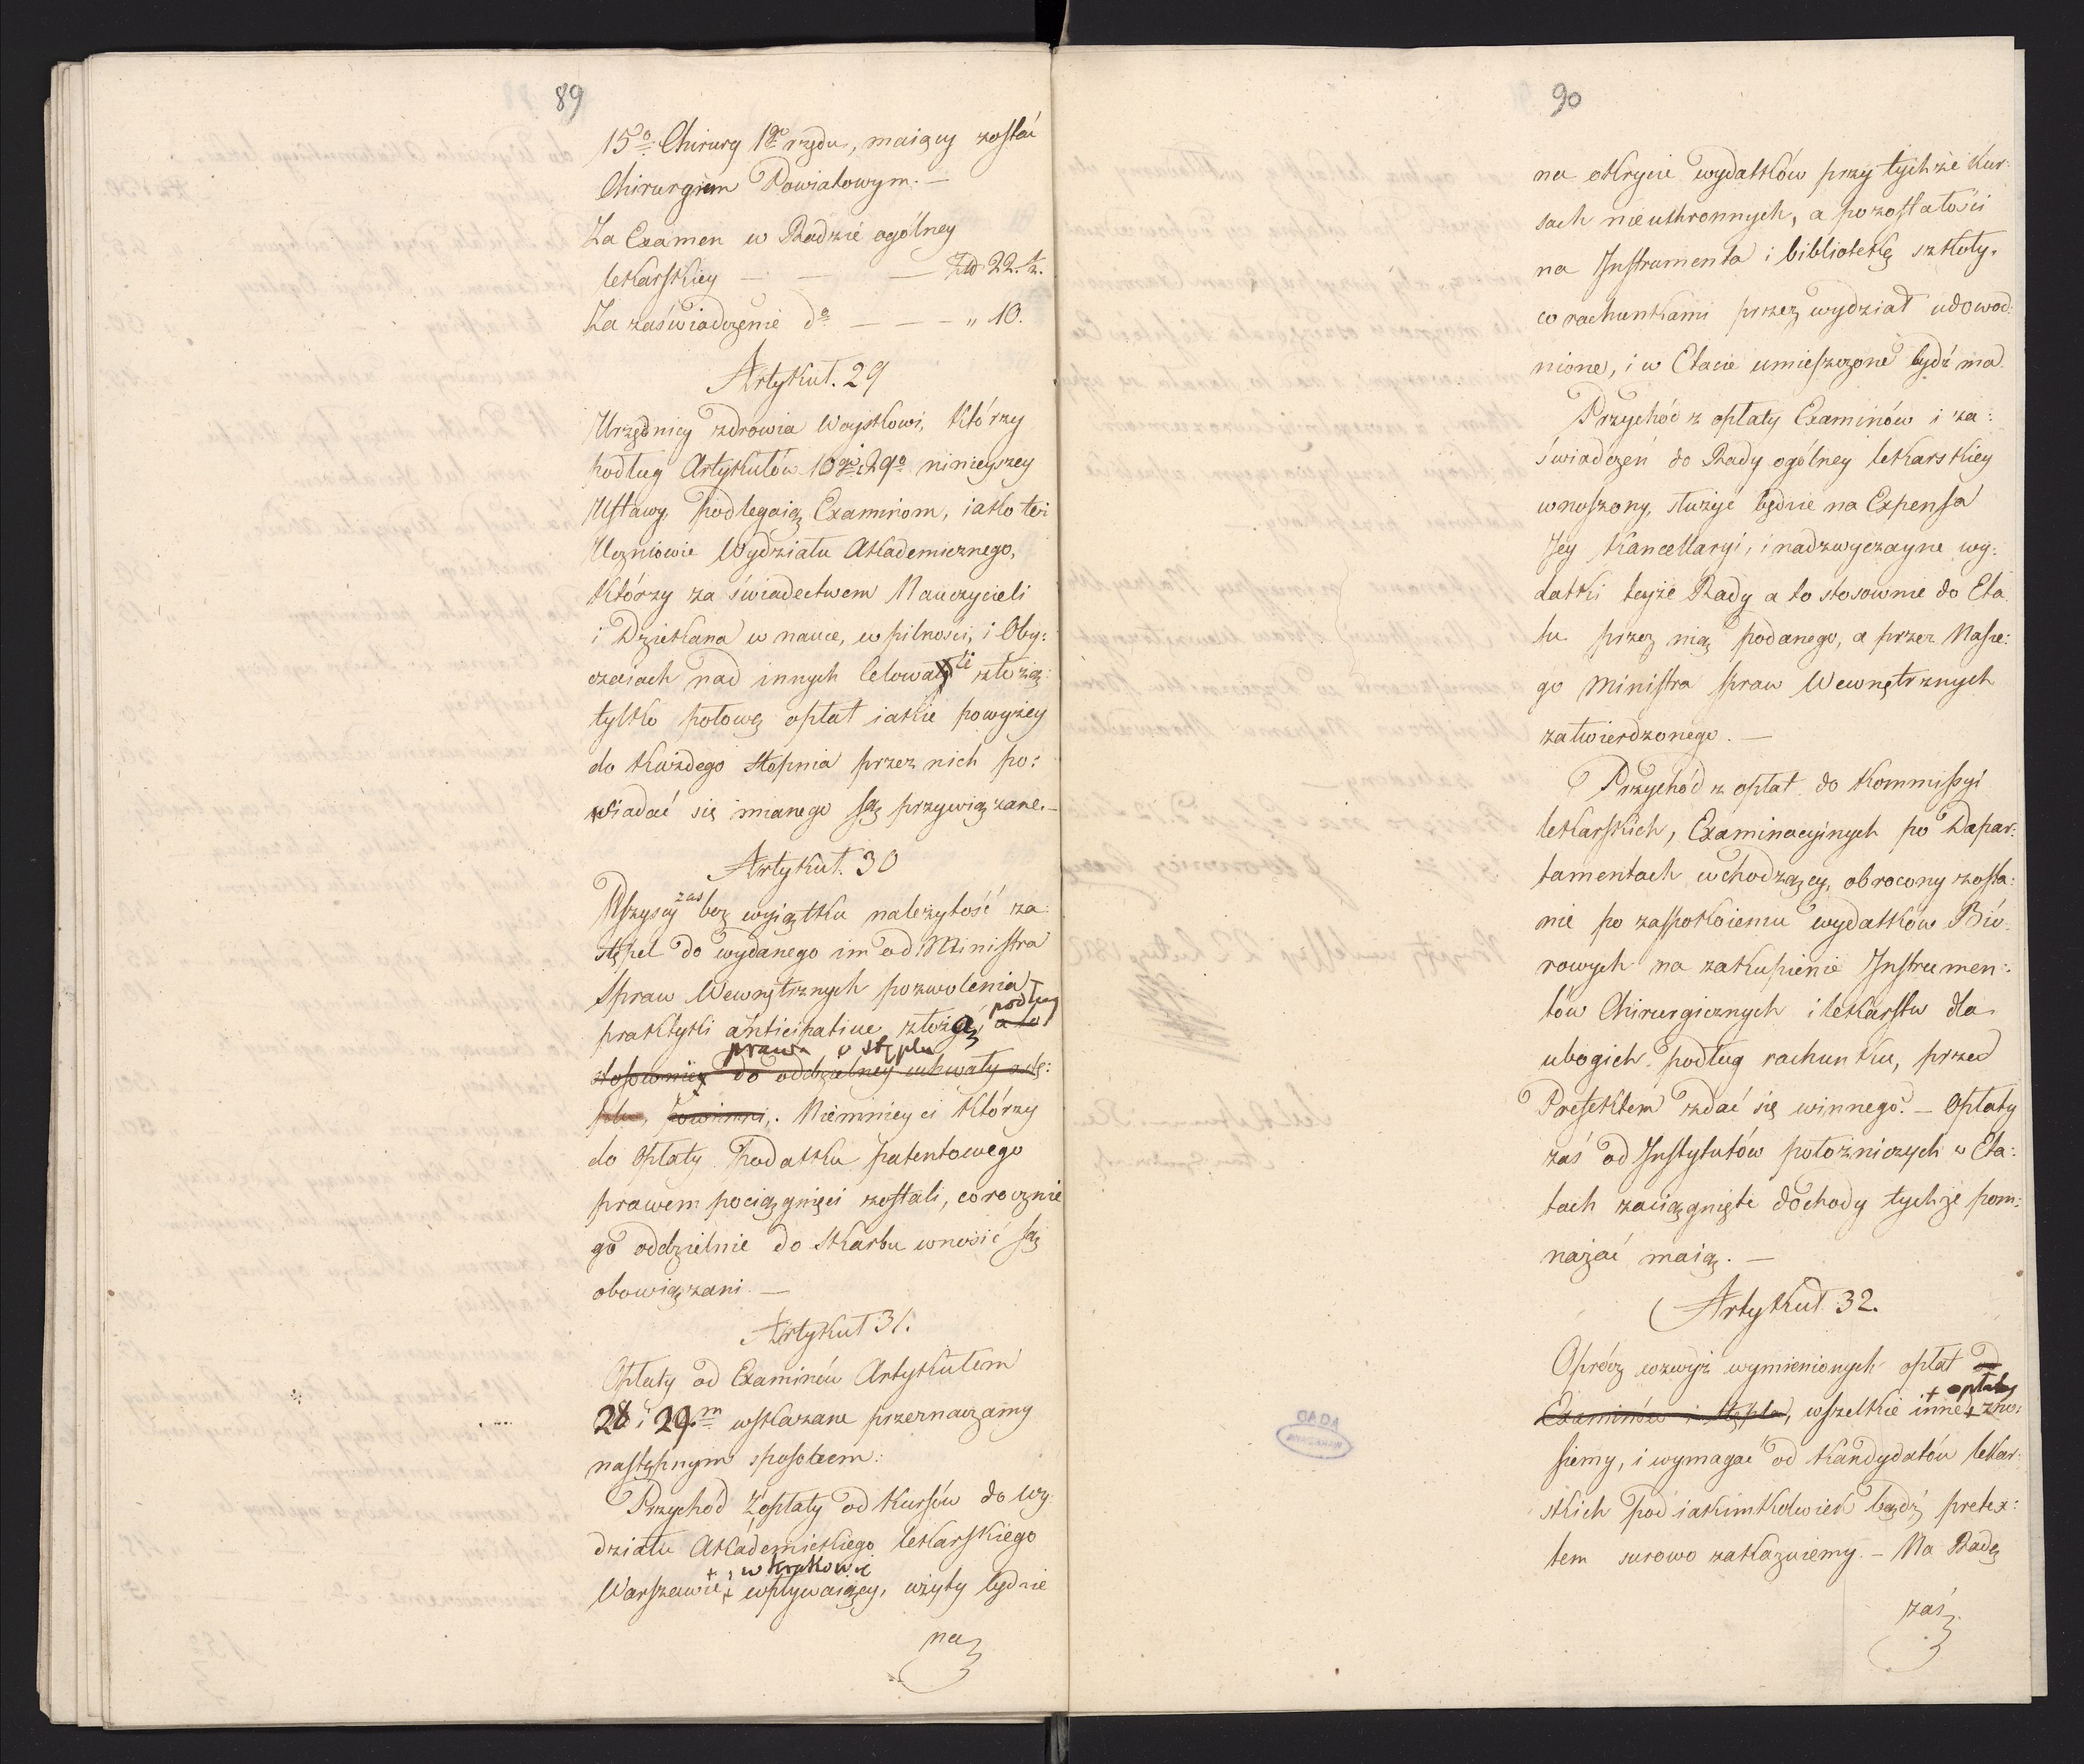 89
15o Chirurg 1go rzędu, maiący zostać
Chirurgiem Powiatowym. —
Za Examen w Radzie ogólney
lekarskiey — — — Złł 22. ½.
Za zaświadczenie do — — — „ 10.
Artykuł. 29
Urzędnicy zdrowia Woyskowi, którzy
podług Artykułów 10go i 29o ninieyszey
Ustawy, podlegaią Examinom, iako też
Uczniowie Wydziału Akademicznego,
którzy za świadectwem Nauczycieli
i Dziekana w nauce, w pilności, i Oby:
czaiach nad innych celowali złożą
tylko połowę opłat iakie powyżey
do każdego stopnia przez nich po:
siadać się mianego są przywiązane. —
Artykuł. 30
Wszyscy zaś bez wyiątku należytość za
stępel do wydanego im od Ministra
Spraw Wewnętrznych pozwolenia
praktyki anticipative złożą, a to podług
prawa o stęplu
stosownie do oddzielney uchwały o stę:
plu, powinni. Niemniey ci którzy
do Opłaty Podatku patentowego
prawem pociągnięci zostali, corocznie
go oddzielnie do Skarbu wnosić są
obowiązani. —
Artykuł 31.
Opłaty od Examinów Artykułem
28 i 29.m wskazane przeznaczamy
następnym sposobem:
Przychód z opłaty od Kursów do Wy
działu Akademickiego lekarskiego
+, w Krakowie
Warszawie + wpływaiący, użyty będzie
na
90
na okrycie wydatków przy tychże Kur:
sach nieuchronnych, a pozostałości
na Instrumenta i bibliotekę szkoły,
co rachunkami przez wydział udowod:
nione, i w Etacie umieszczone bydź ma.
Przychód z opłaty Examinów i za:
świadczeń do Rady ogólney lekarskiey
wnoszony, służyć będzie na Expensa
Jey Kancellaryi, i nadzwyczayne wy:
datki teyże Rady a to stosownie do Eta
tu przez nią podanego, a przez Nasze:
go Ministra Spraw Wewnętrznych
zatwierdzonego. —
Przychód z opłat do Kommissyi
lekarskich, Examinacyinych po Depar:
tamentach wchodzący, obrocony zosta:
nie po zaspokoieniu wydatków Bió:
rowych na zakupienie Instrumen:
tów Chirurgicznych i lekarstw dla
ubogich podług rachunku, przed
Prefektem zdać się winnego. — Opłaty
zaś od Instytutów położniczych w Eta:
tach zaciągnięte dochody tychże pom:
nażać maią. —
Artykuł 32.
Oprócz wzwyż wymienionych opłat od
+ opłaty
Examinów i stępla, wszelkie inne + zno:
siemy, i wymagać od Kandydatów lekar
skich pod iakimkolwiek bądź pretex:
tem surowo zakazuiemy. — Na Radę
zaś
AGAD
WARSZAWA